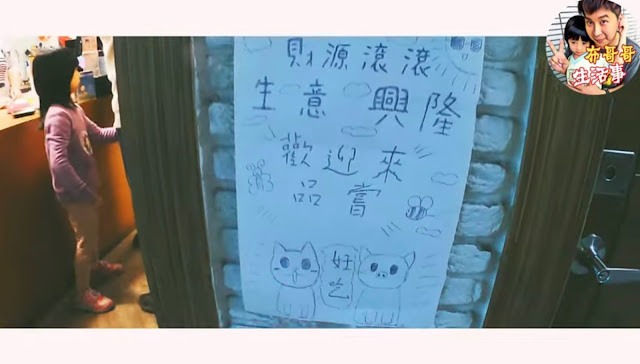 財源滾滾
生意興隆
歡迎來
品嘗
好吃
布哥哥
生活事